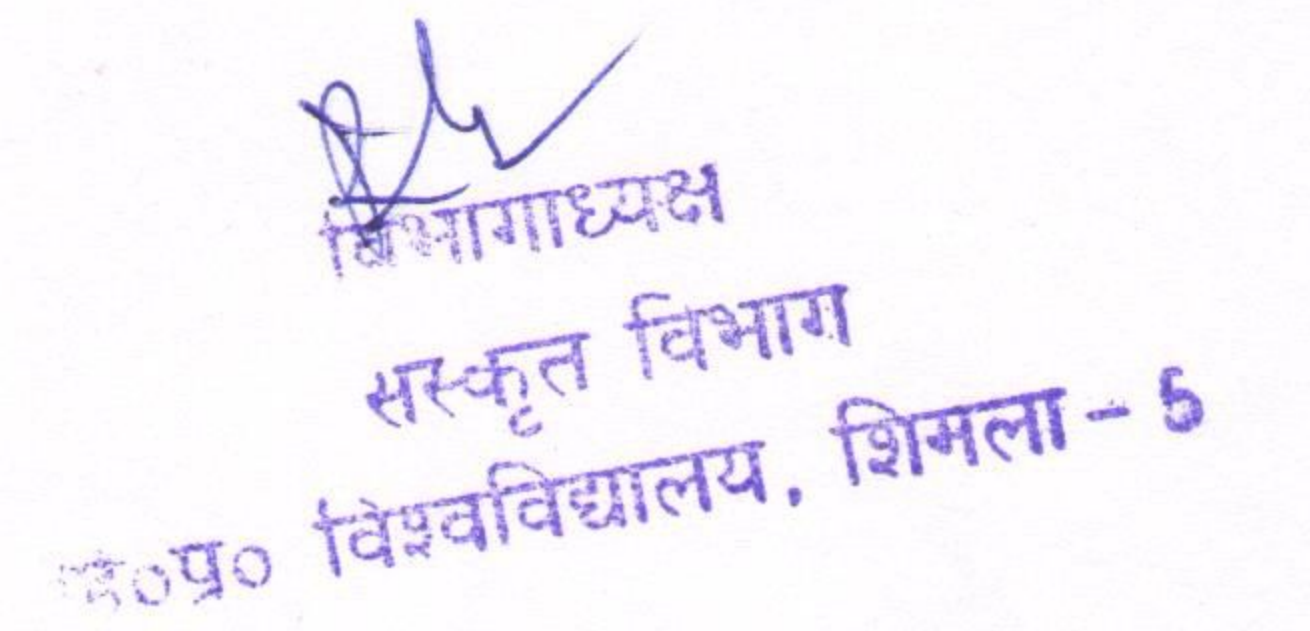 विभागाध्यक्ष
संस्कृत विभाग
हि०प्र० विश्वविद्यालय, शिमला - 5